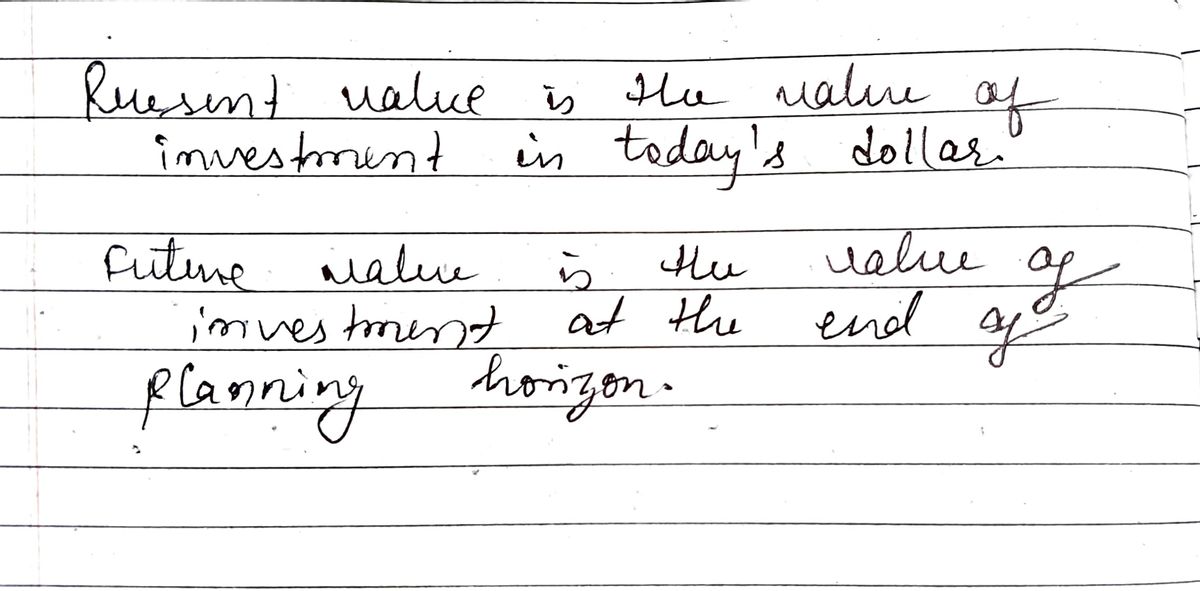 Present value is the value of
investment in today's dollar.
Future value is the value of
investment at the end of
planning horizon.